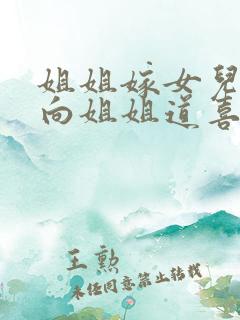 姐姐嫁女兒
向姐姐道喜
王勲
未经同意禁止转载